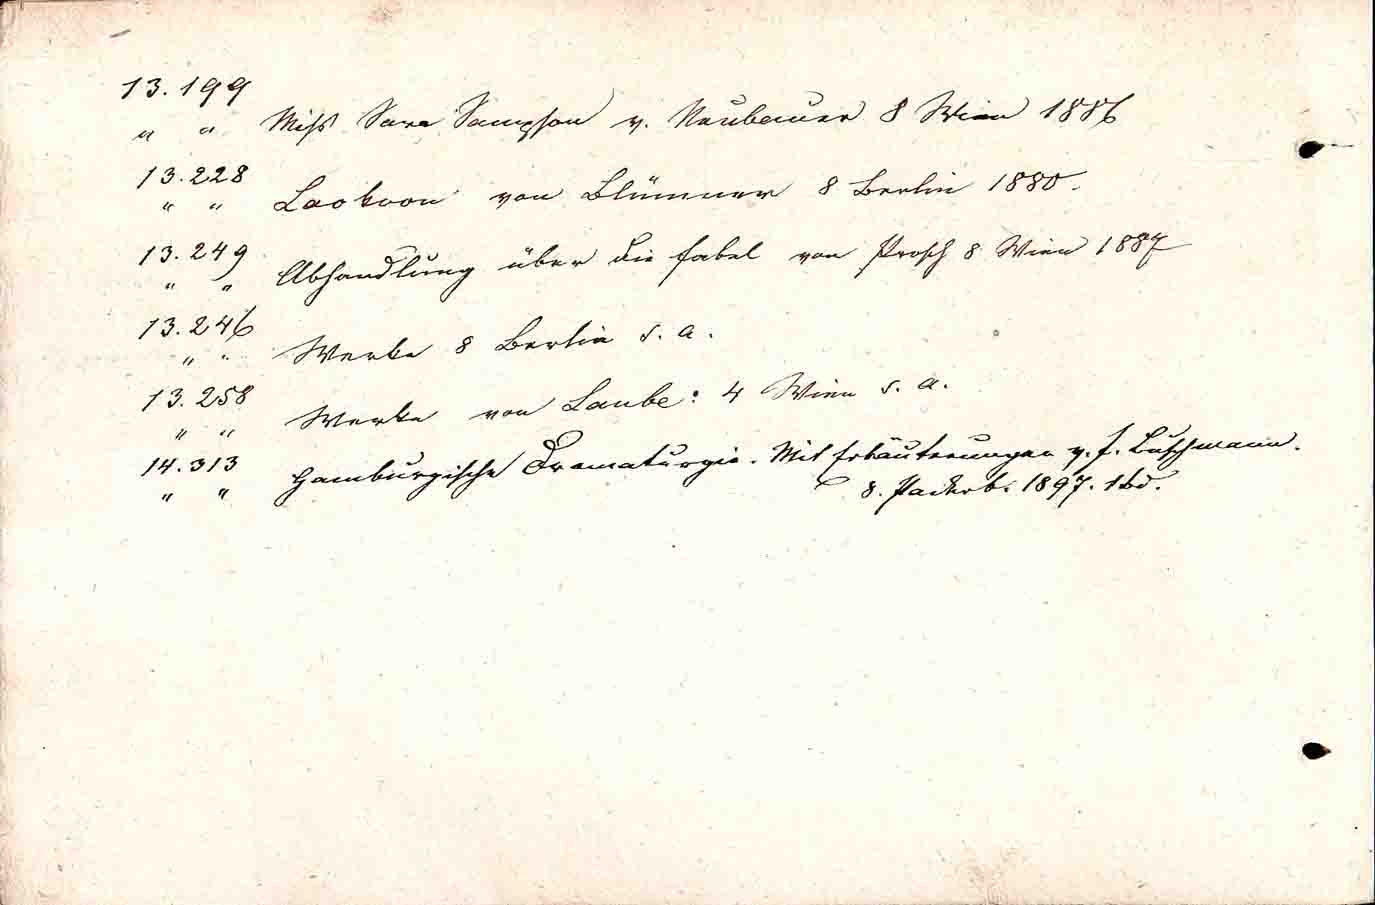 13.199
" " Miss Sara Sampson v. Neubauer 8 Wien 1886
13.228
" " Laokoon von Blümner 8 Berlin 1880.
13.249
" " Abhandlung über die Fabel von Prosch 8 Wien 1887
13.246
" " Werke 8 Berlin s. a.
13.258
" " Werke von Laube: 4 Wien s. a.
14.313
" " Hamburgische Dramaturgie. Mit Erläuterungen v. J. Buschmann.
8. Paderb. 1897. 1 Bd.